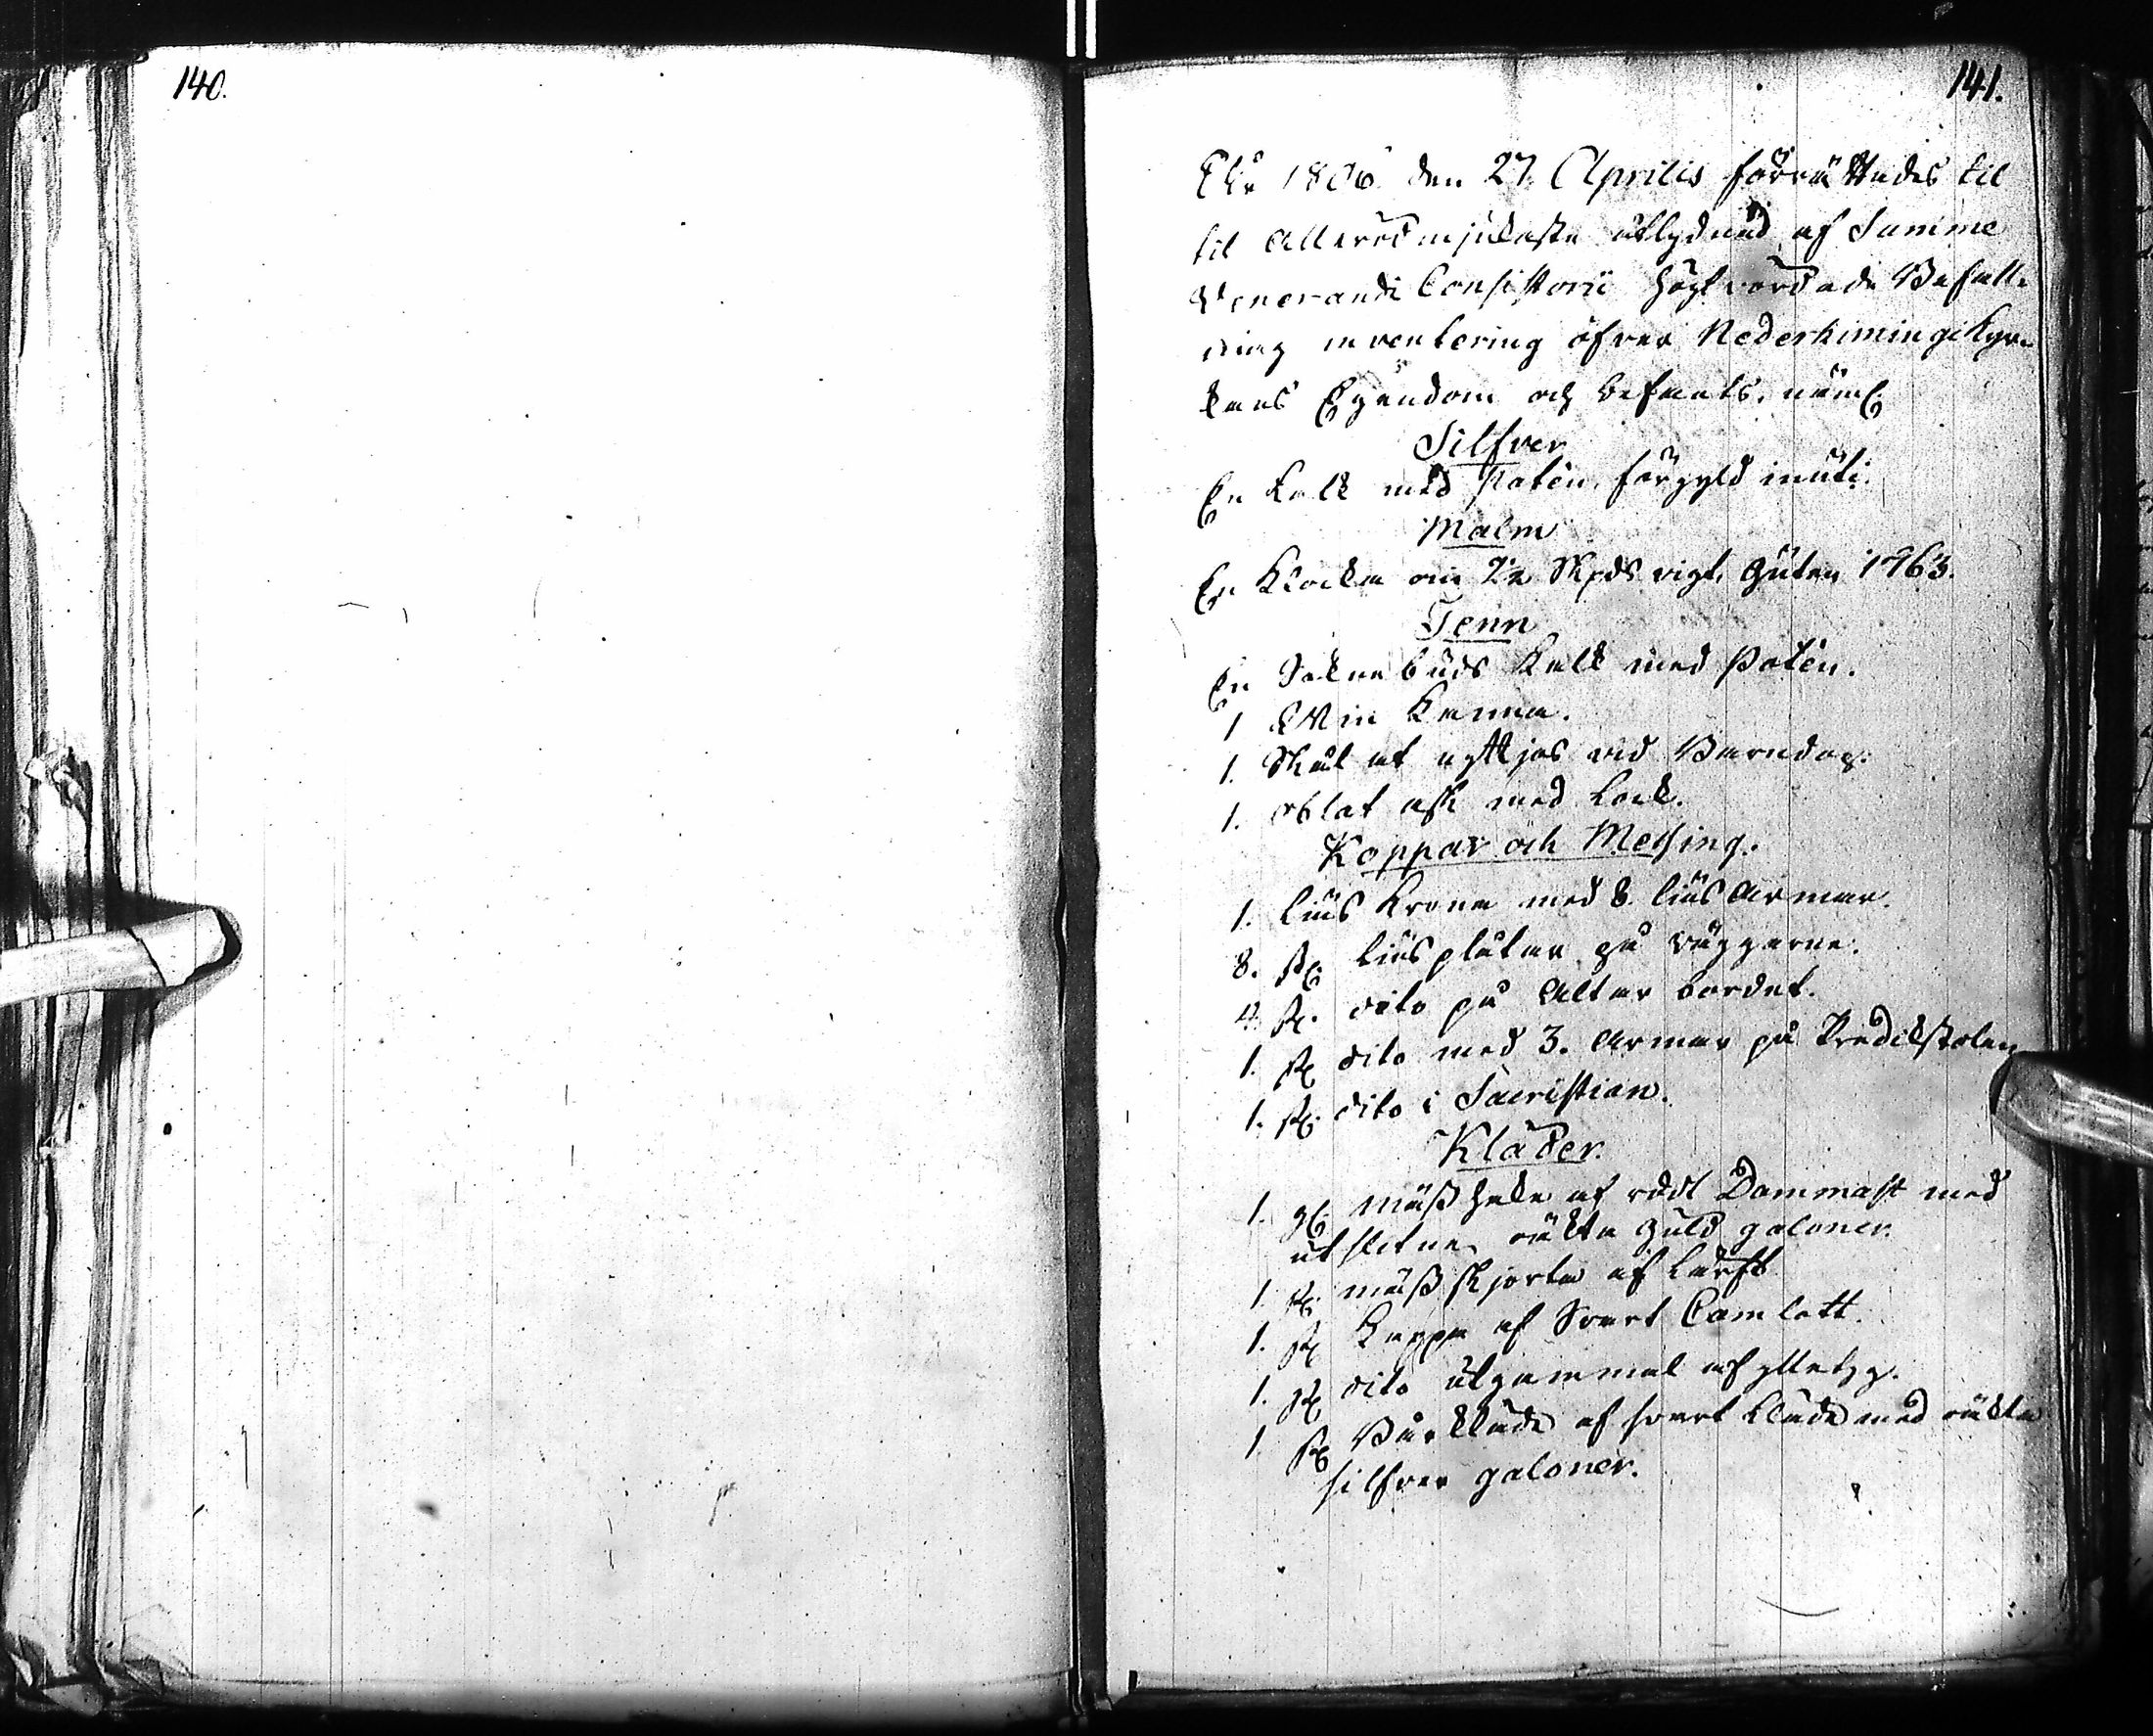 140.
141.
År 1806 den 27 Aprilis förrättades til
til Allerödmjukaste åtlydnad af Summe
Venerandi Consistorii högtvördade Befall-
ning inventering öfver Nederkiminge Kyr-
kans Egendom och befants, näml.
Silfver
En Kalk med Patén, förgyld inuti.
Malm
En Klocka om 2 1/2 Skpds vigt, Guten 1763.
Tenn
En Sokne buds Kalk med Patén.
1 Win Kanna.
1. Skål at nyttjas vid Barndop.
1. Oblat ask med Lock.
Koppar och Messing.
1. Lius Krona med 8. lius Armar.
8. st. Liusplåtar på väggarne.
4. st. dito på Altar bordet.
1. st. dito med 3. Armar på Predikstolen
1. st. dito i Sacristian.
Kläder.
1. st. Mäss hake af rödt Dammast med
utslitne, äkta Guld galoner.
1. st. mäss skjorta af Lärft
1. st. Kappa af Svart Camlott.
1. st. dito utgammal af ylletyg.
1 st. Bårkläde af svart kläde med äkta
silfver galoner.